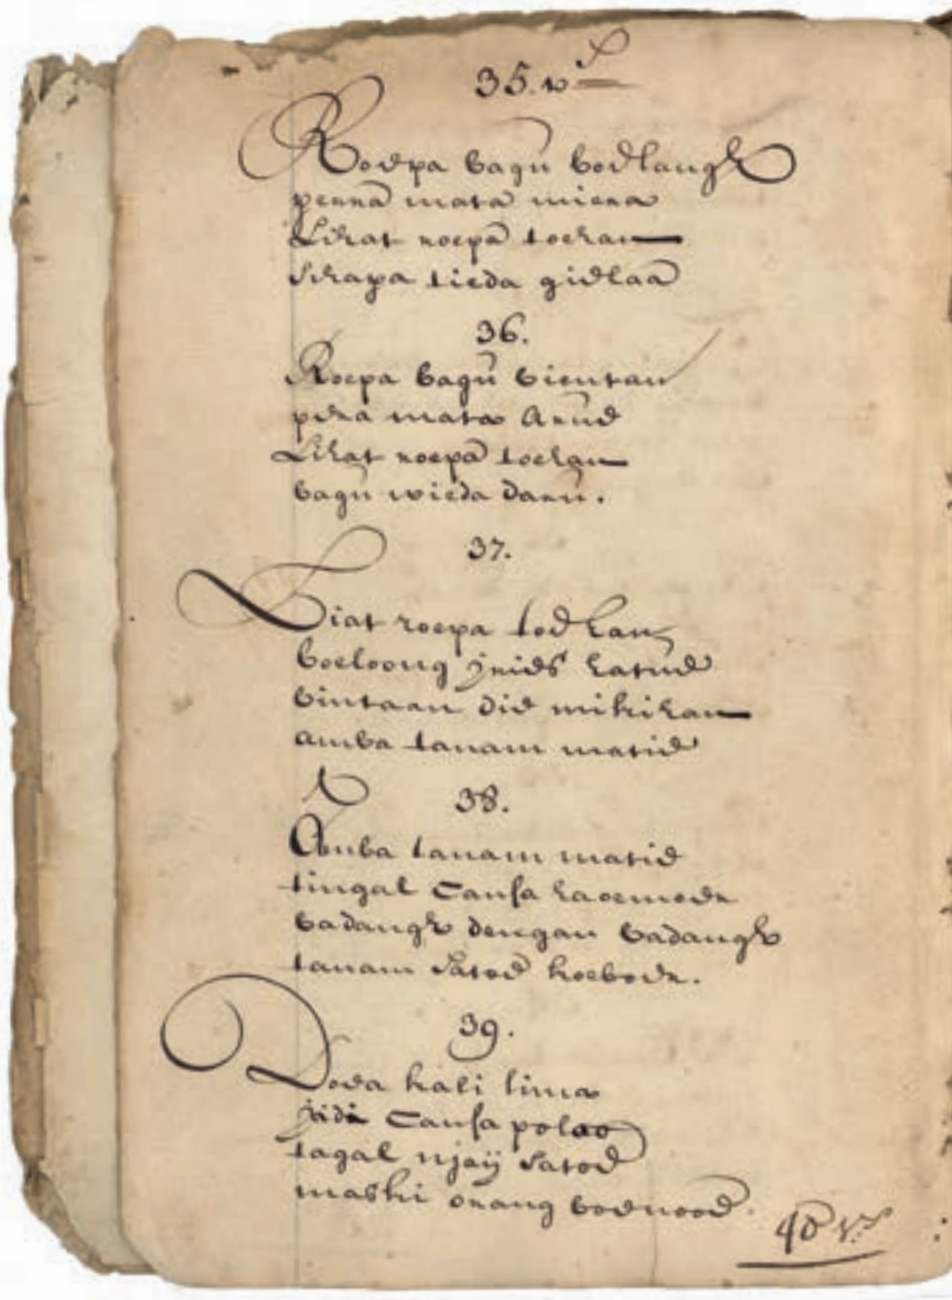 35. vs
Roepa bagu boelangh
penna mata miera
Lihat roepa toehan
Siapa tieda gielaa
36.
Roepa bagu bientan
pena mata arue
Lihat roepa toehan
bagu wieda darii.
37.
Liat roepa toehan
boeloong jnids ratue
bintaan die mikiran
amba tanam matie
38.
Amba tanam matie
tingal Cansa
badangh dengan badangh
tanam Satoe koeboer.
39.
Doea kali lima
jidi Cansa poloo
tagal njaij Satoe
maski orang boenoe.
40 vs